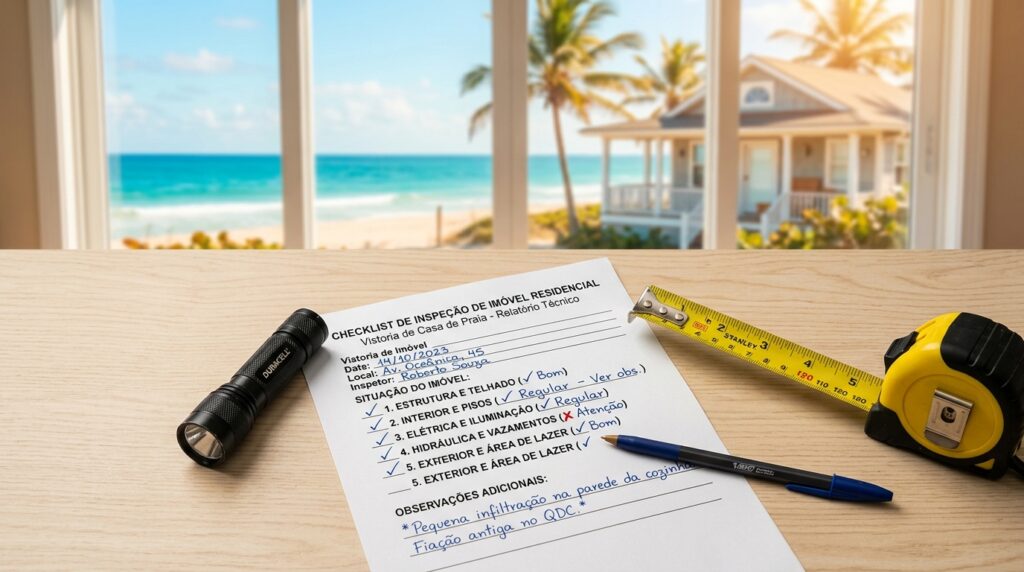 CHECKLIST DE INSPEÇÃO DE IMÓVEL RESIDENCIAL
Vistoria de Casa de Praia - Relatório Técnico
Vistoria de Imóvel
Date: 14/10/2023
Local: Av. Oceânica, 45
Inspetor: Roberto Souza
SITUAÇÃO DO IMÓVEL:
✓ 1. ESTRUTURA E TELHADO (✓ Bom)
✓ 2. INTERIOR E PISOS (✓ Regular - Ver obs.)
✓ 3. ELÉTRICA E ILUMINAÇÃO (✓ Regular)
✓ 4. HIDRÁULICA E VAZAMENTOS (✗ Atenção)
✓ 5. EXTERIOR E ÁREA DE LAZER (✓ Bom)
5. EXTERIOR E ÁREA DE LAZER (✓
OBSERVAÇÕES ADICIONAIS:
*Pequena infiltração na parede da cozinha
Fiação antiga no QDC.*
DURACELL
STANLEY
2 3 4 5